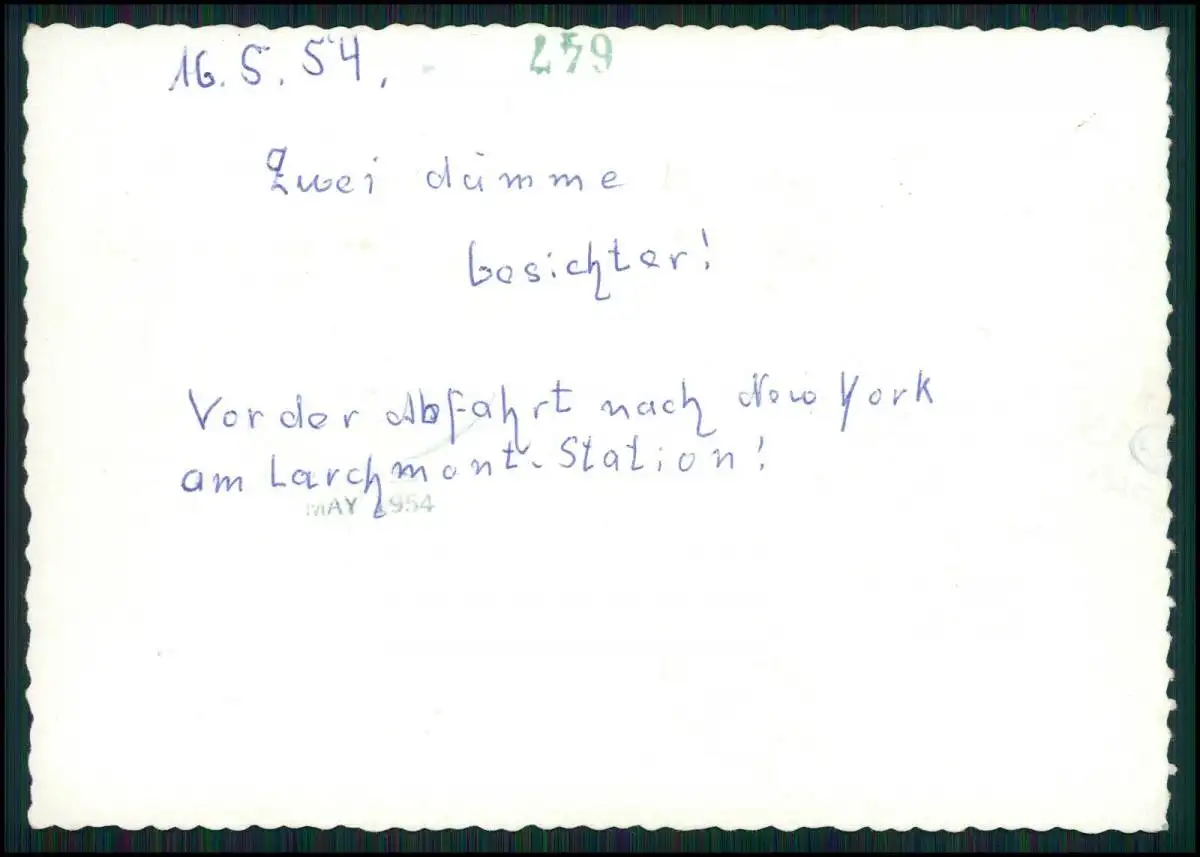 16. 5. 54. 259
Zwei dumme
Gesichter!
Vor der Abfahrt nach New York
am Larchmont-Station!
MAY 1954